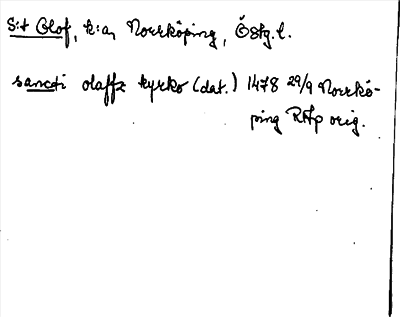 S:t Olof, k:a, Norrköping, Östg.l.
sancti olaffz kyrko (dat.) 1478 29/9 Norrkö-
ping RAp orig.